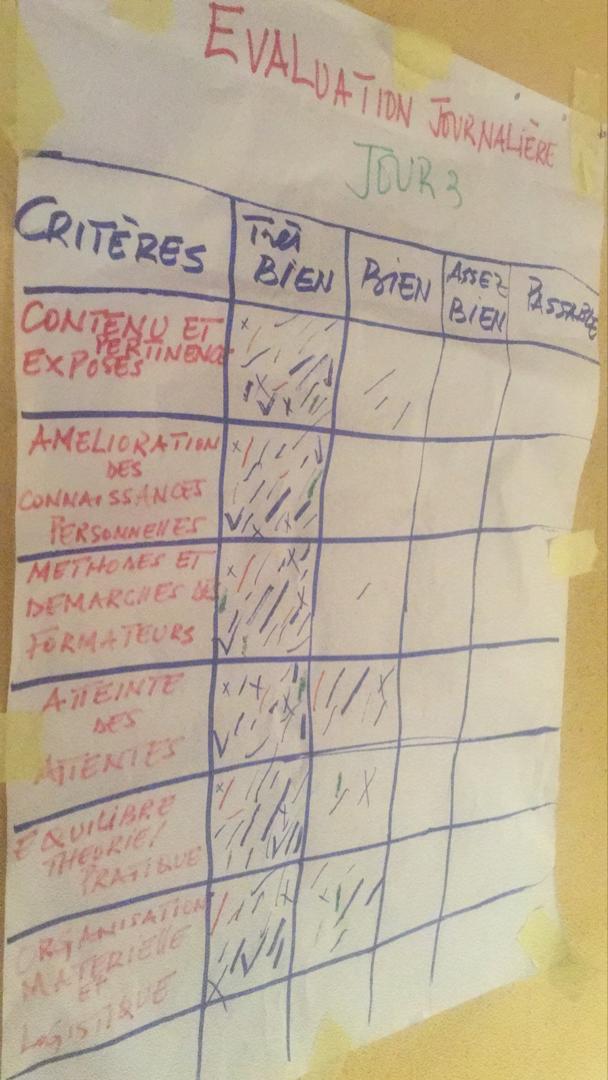 EVALUATION JOURNALIÈRE
JOUR 3
CRITÈRES
Très
BIEN
BIEN
ASSEZ
BIEN
PASSABLE
CONTENU ET
PERTINENCE
EXPOSÉS
AMELIORATION
DES
CONNAISSANCES
PERSONNELLES
METHODES ET
DEMARCHES DES
FORMATEURS
ATTEINTE
DES
ATTENTES
EQUILIBRE
THEORIE/
PRATIQUE
ORGANISATION
MATERIELLE
ET
LOGISTIQUE